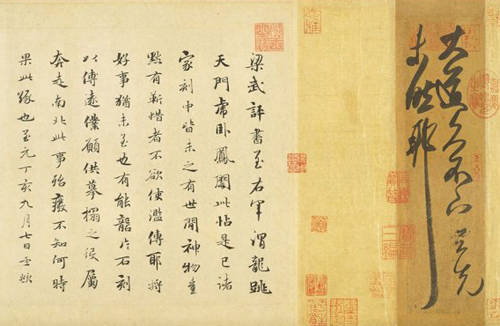 大道久不下與先
未然耶
梁武評書至右軍謂龍跳
天門虎臥鳳閣此帖是已諸
家刻中皆未之有世間神物豈
默有靳惜者不欲使濫傳耶將
好事猶未至也有能礱片石刻
以傳遠僕願供摹搨之役屬
奔走南北此事殆廢不知何時
果此緣也至元丁亥九月七日孟頫